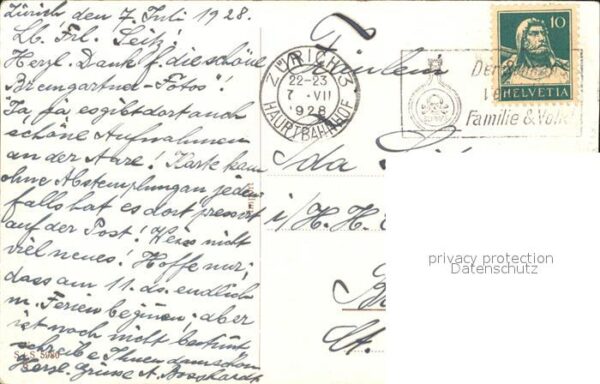 Zürich den 7. Juli 1928.
Lb. Frl. Seitz!
Herzl. Dank f. die schöne
"Bremgartner-Fotos"!
Ja ja es gibt dort auch
schöne Aufnahmen
an der Aare! Karte kam
ohne Abstemplungan, jeden
falls hat es dort pressiert
auf der Post! Weiss nicht
viel neues! Hoffe nur,
dass am 11. ds. endlich
m. Ferien beginnen; aber
ist noch nicht bestimmt
schreibe Ihnen dann schon
Herzl. Grüsse A. Bosshardt
S.I.S. 5080
Fräulein
Ida
i/H. H.
St.
ZÜRICH 3
22-23
7. VII
1928
HAUPTBAHNHOF
Der
Familie & Volk
10
HELVETIA
privacy protection
Datenschutz